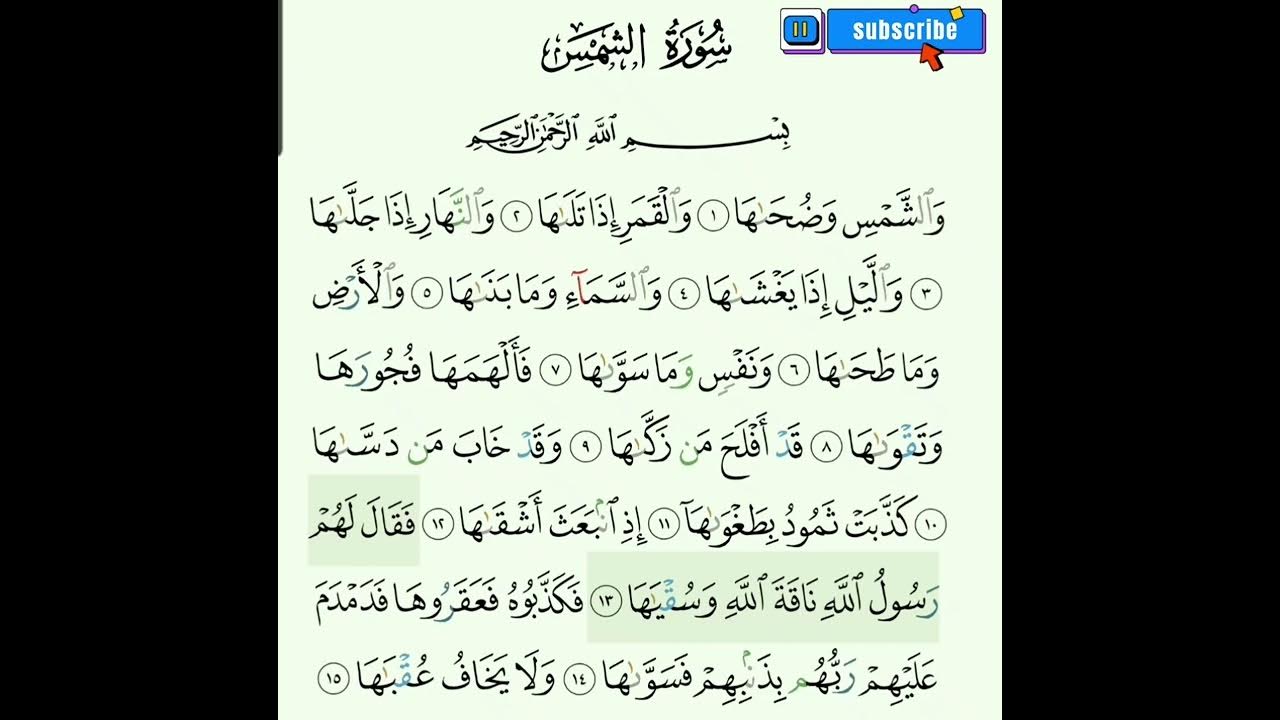 subscribe
سُورَةُ الشَّمْسِ
بِسْمِ ٱللَّهِ ٱلرَّحْمَٰنِ ٱلرَّحِيمِ
وَٱلشَّمْسِ وَضُحَىٰهَا ١ وَٱلْقَمَرِ إِذَا تَلَىٰهَا ٢ وَٱلنَّهَارِ إِذَا جَلَّىٰهَا
٣ وَٱلَّيْلِ إِذَا يَغْشَىٰهَا ٤ وَٱلسَّمَآءِ وَمَا بَنَىٰهَا ٥ وَٱلْأَرْضِ
وَمَا طَحَىٰهَا ٦ وَنَفْسٍ وَمَا سَوَّىٰهَا ٧ فَأَلْهَمَهَا فُجُورَهَا
وَتَقْوَىٰهَا ٨ قَدْ أَفْلَحَ مَن زَكَّىٰهَا ٩ وَقَدْ خَابَ مَن دَسَّىٰهَا
١٠ كَذَّبَتْ ثَمُودُ بِطَغْوَىٰهَآ ١١ إِذِ ٱنۢبَعَثَ أَشْقَىٰهَا ١٢ فَقَالَ لَهُمْ
رَسُولُ ٱللَّهِ نَاقَةَ ٱللَّهِ وَسُقْيَٰهَا ١٣ فَكَذَّبُوهُ فَعَقَرُوهَا فَدَمْدَمَ
عَلَيْهِمْ رَبُّهُم بِذَنۢبِهِمْ فَسَوَّىٰهَا ١٤ وَلَا يَخَافُ عُقْبَٰهَا ١٥